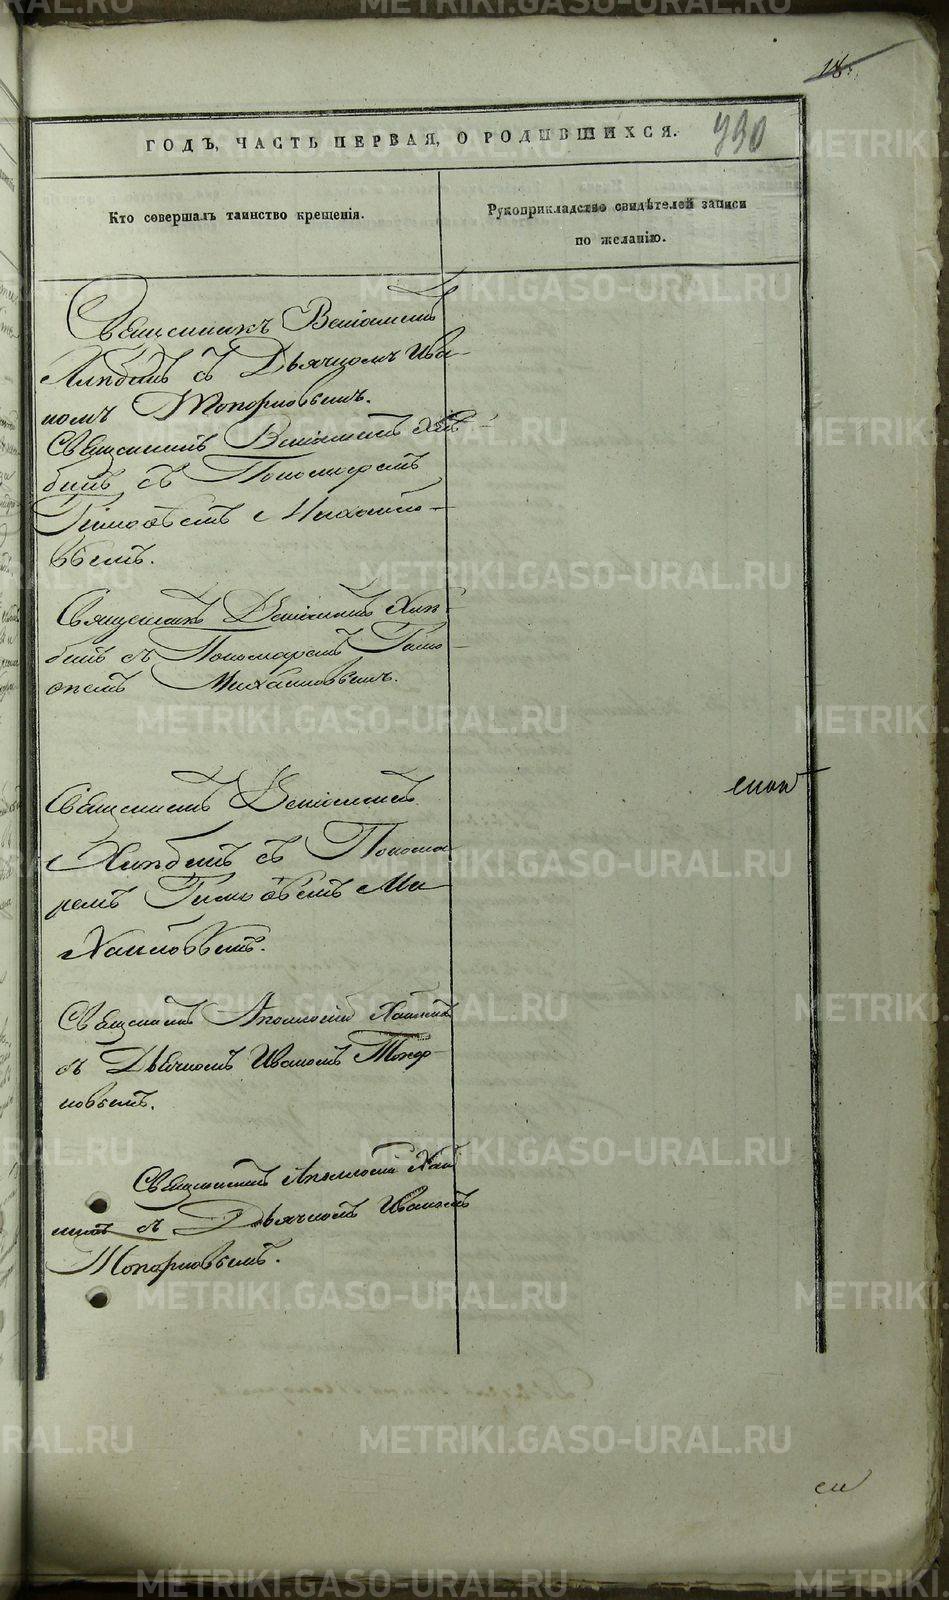 18.
990
ГОДЪ, ЧАСТЬ ПЕРВАЯ, О РОДИВШИХСЯ.
Кто совершалъ таинство крещенія.
Рукоприкладство свидѣтелей записи
по желанію.
Священникъ Веніаминъ
Хлѣбинъ съ Дьячкомъ Ива-
номъ Топорковымъ.
Священникъ Веніаминъ Хлѣ-
бинъ съ Пономаремъ
Тимоѳеемъ Михайло-
вымъ.
Священникъ Веніаминъ Хлѣ-
бинъ съ Пономаремъ Тимо-
ѳеемъ Михайловымъ.
Священникъ Веніаминъ
Хлѣбинъ съ Понома
ремъ Тимоѳеемъ Ми
хайловымъ.
Священникъ Аполлосій
съ Дьячкомъ Иваномъ Топор-
новымъ.
Священникъ Аполлосій
съ Дьячкомъ Иваномъ
Топорновымъ.
METRIKI.GASO-URAL.RU